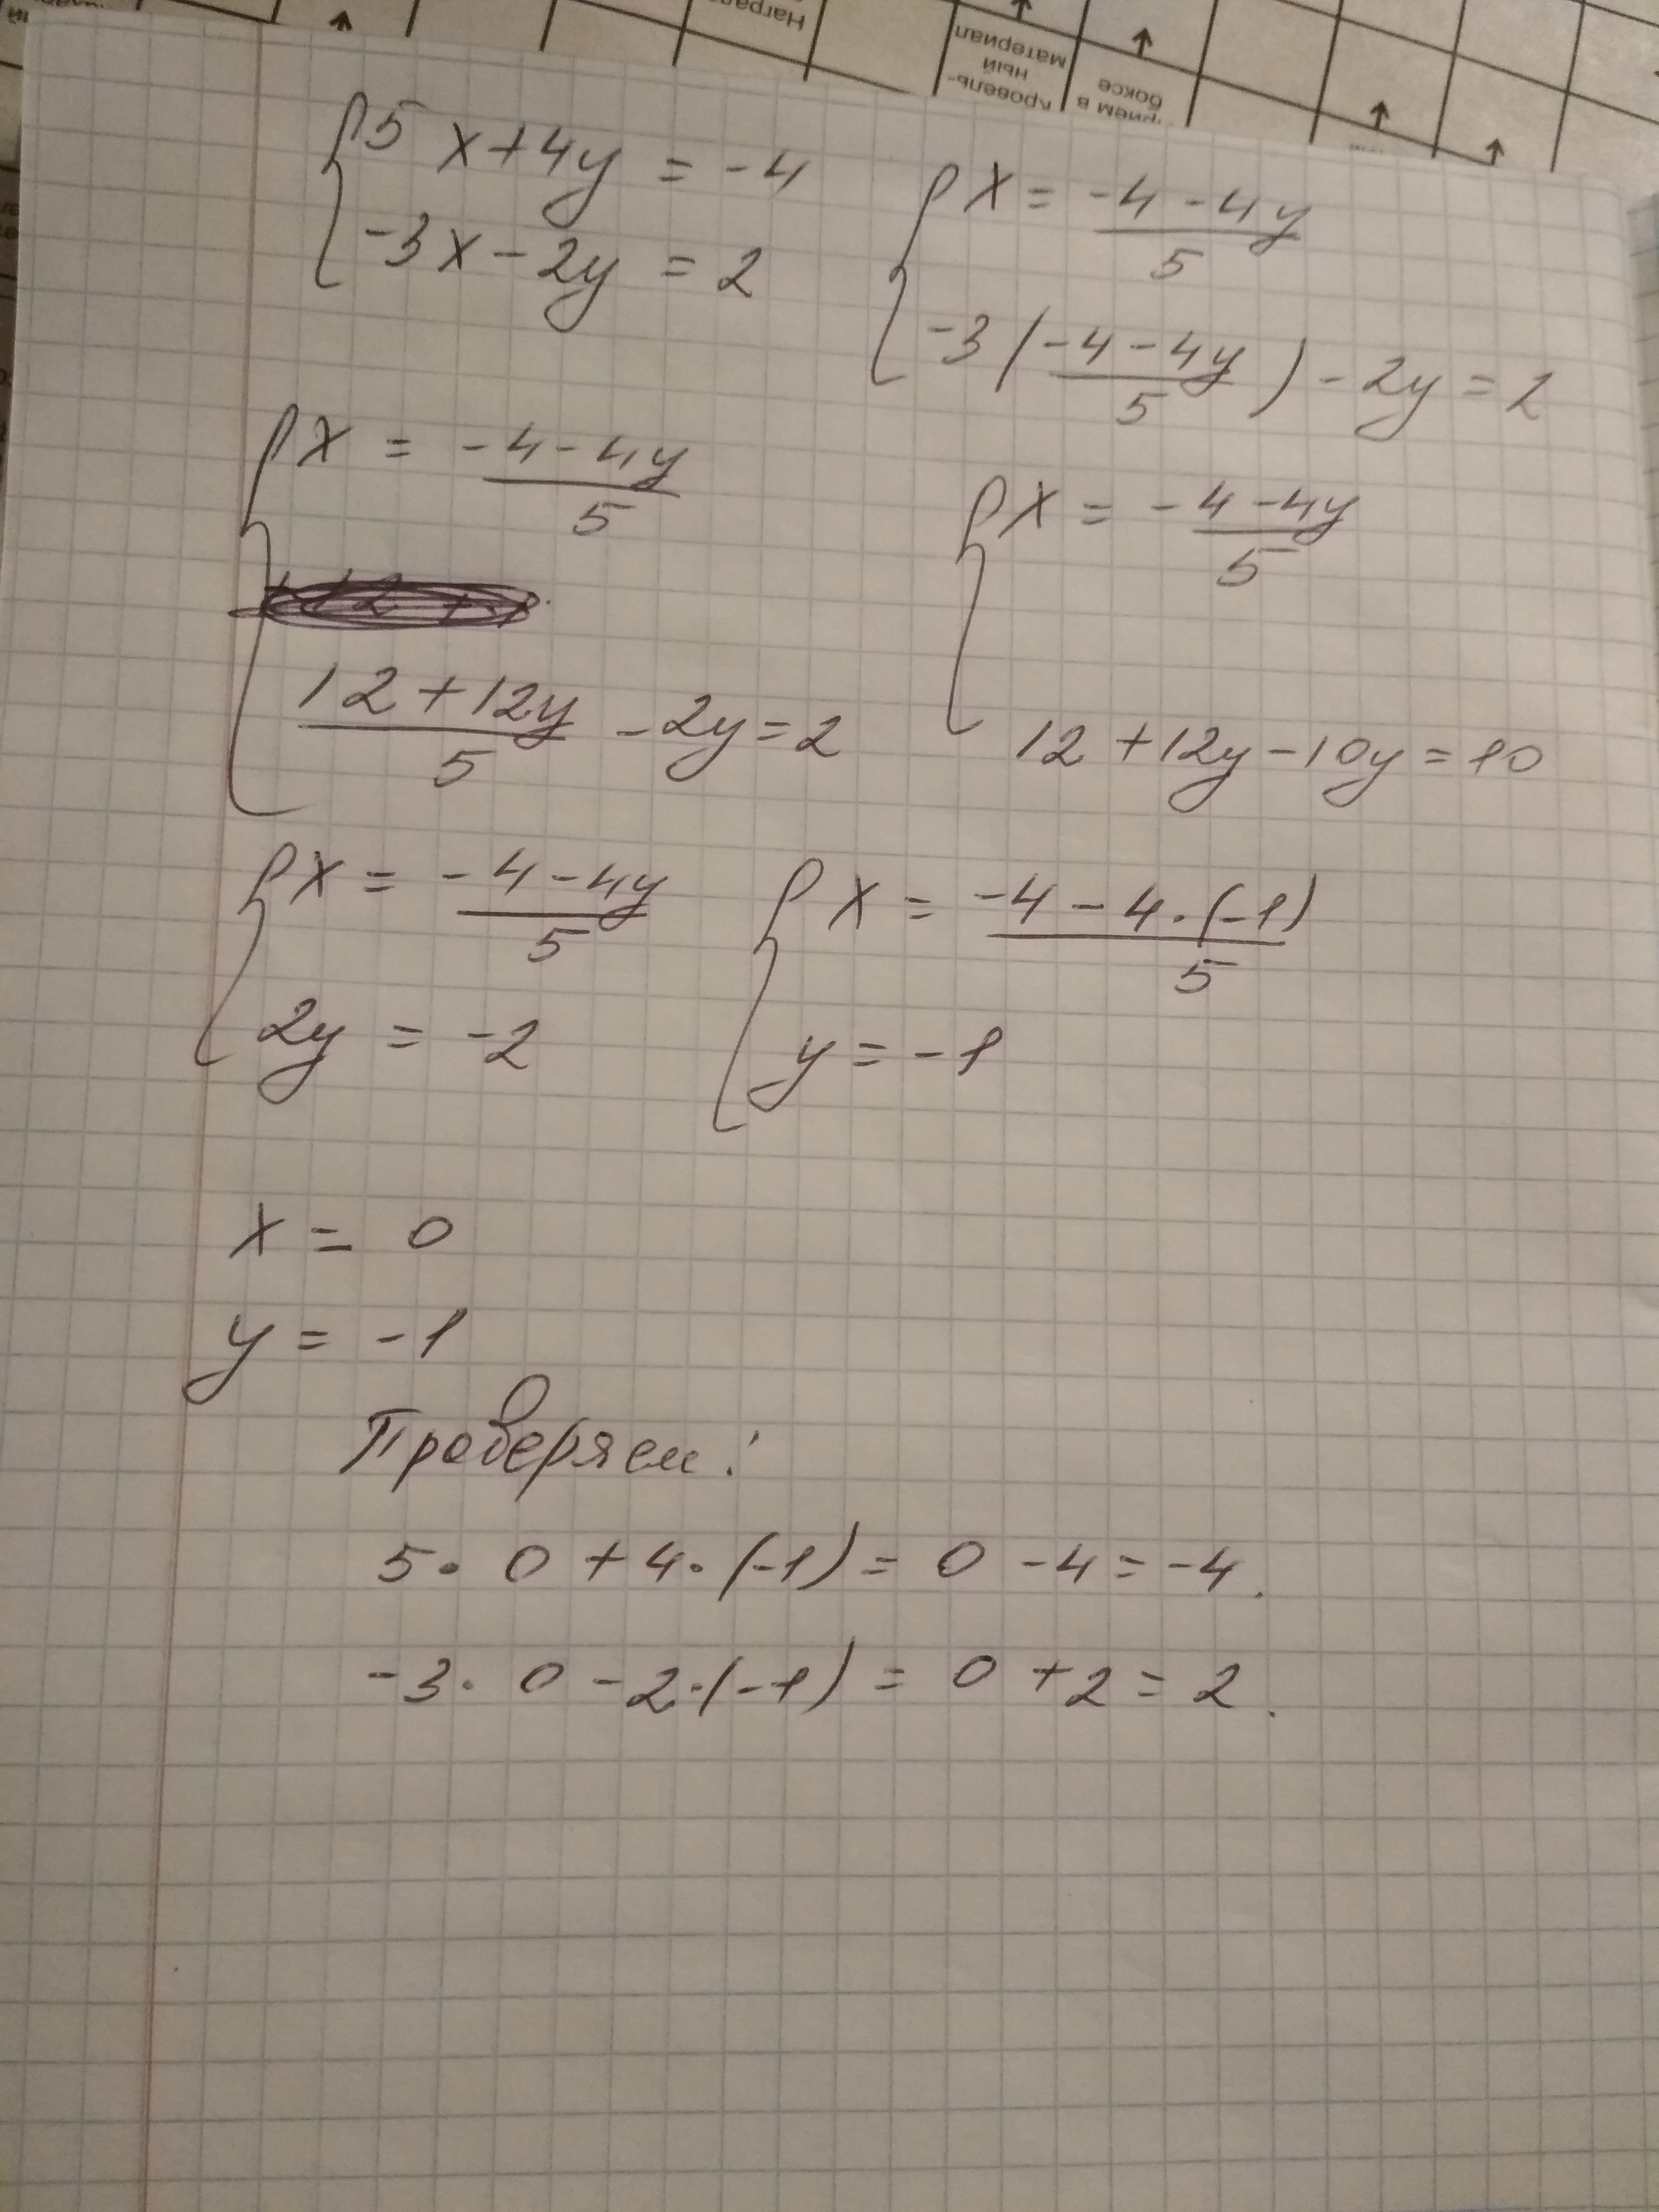 Награ
материал
ный
кровель-
боксе
5x+4y = -4
-3x-2y = 2
x = -4-4y/5
-3(-4-4y/5)-2y=2
x = -4-4y/5
12+12y/5 -2y=2
x = -4-4y/5
12+12y-10y=10
x = -4-4y/5
2y = -2
x = -4-4·(-1)/5
y = -1
x = 0
y = -1
Проверяем:
5· 0+4·(-1)= 0-4=-4.
-3· 0-2·(-1)= 0+2=2.